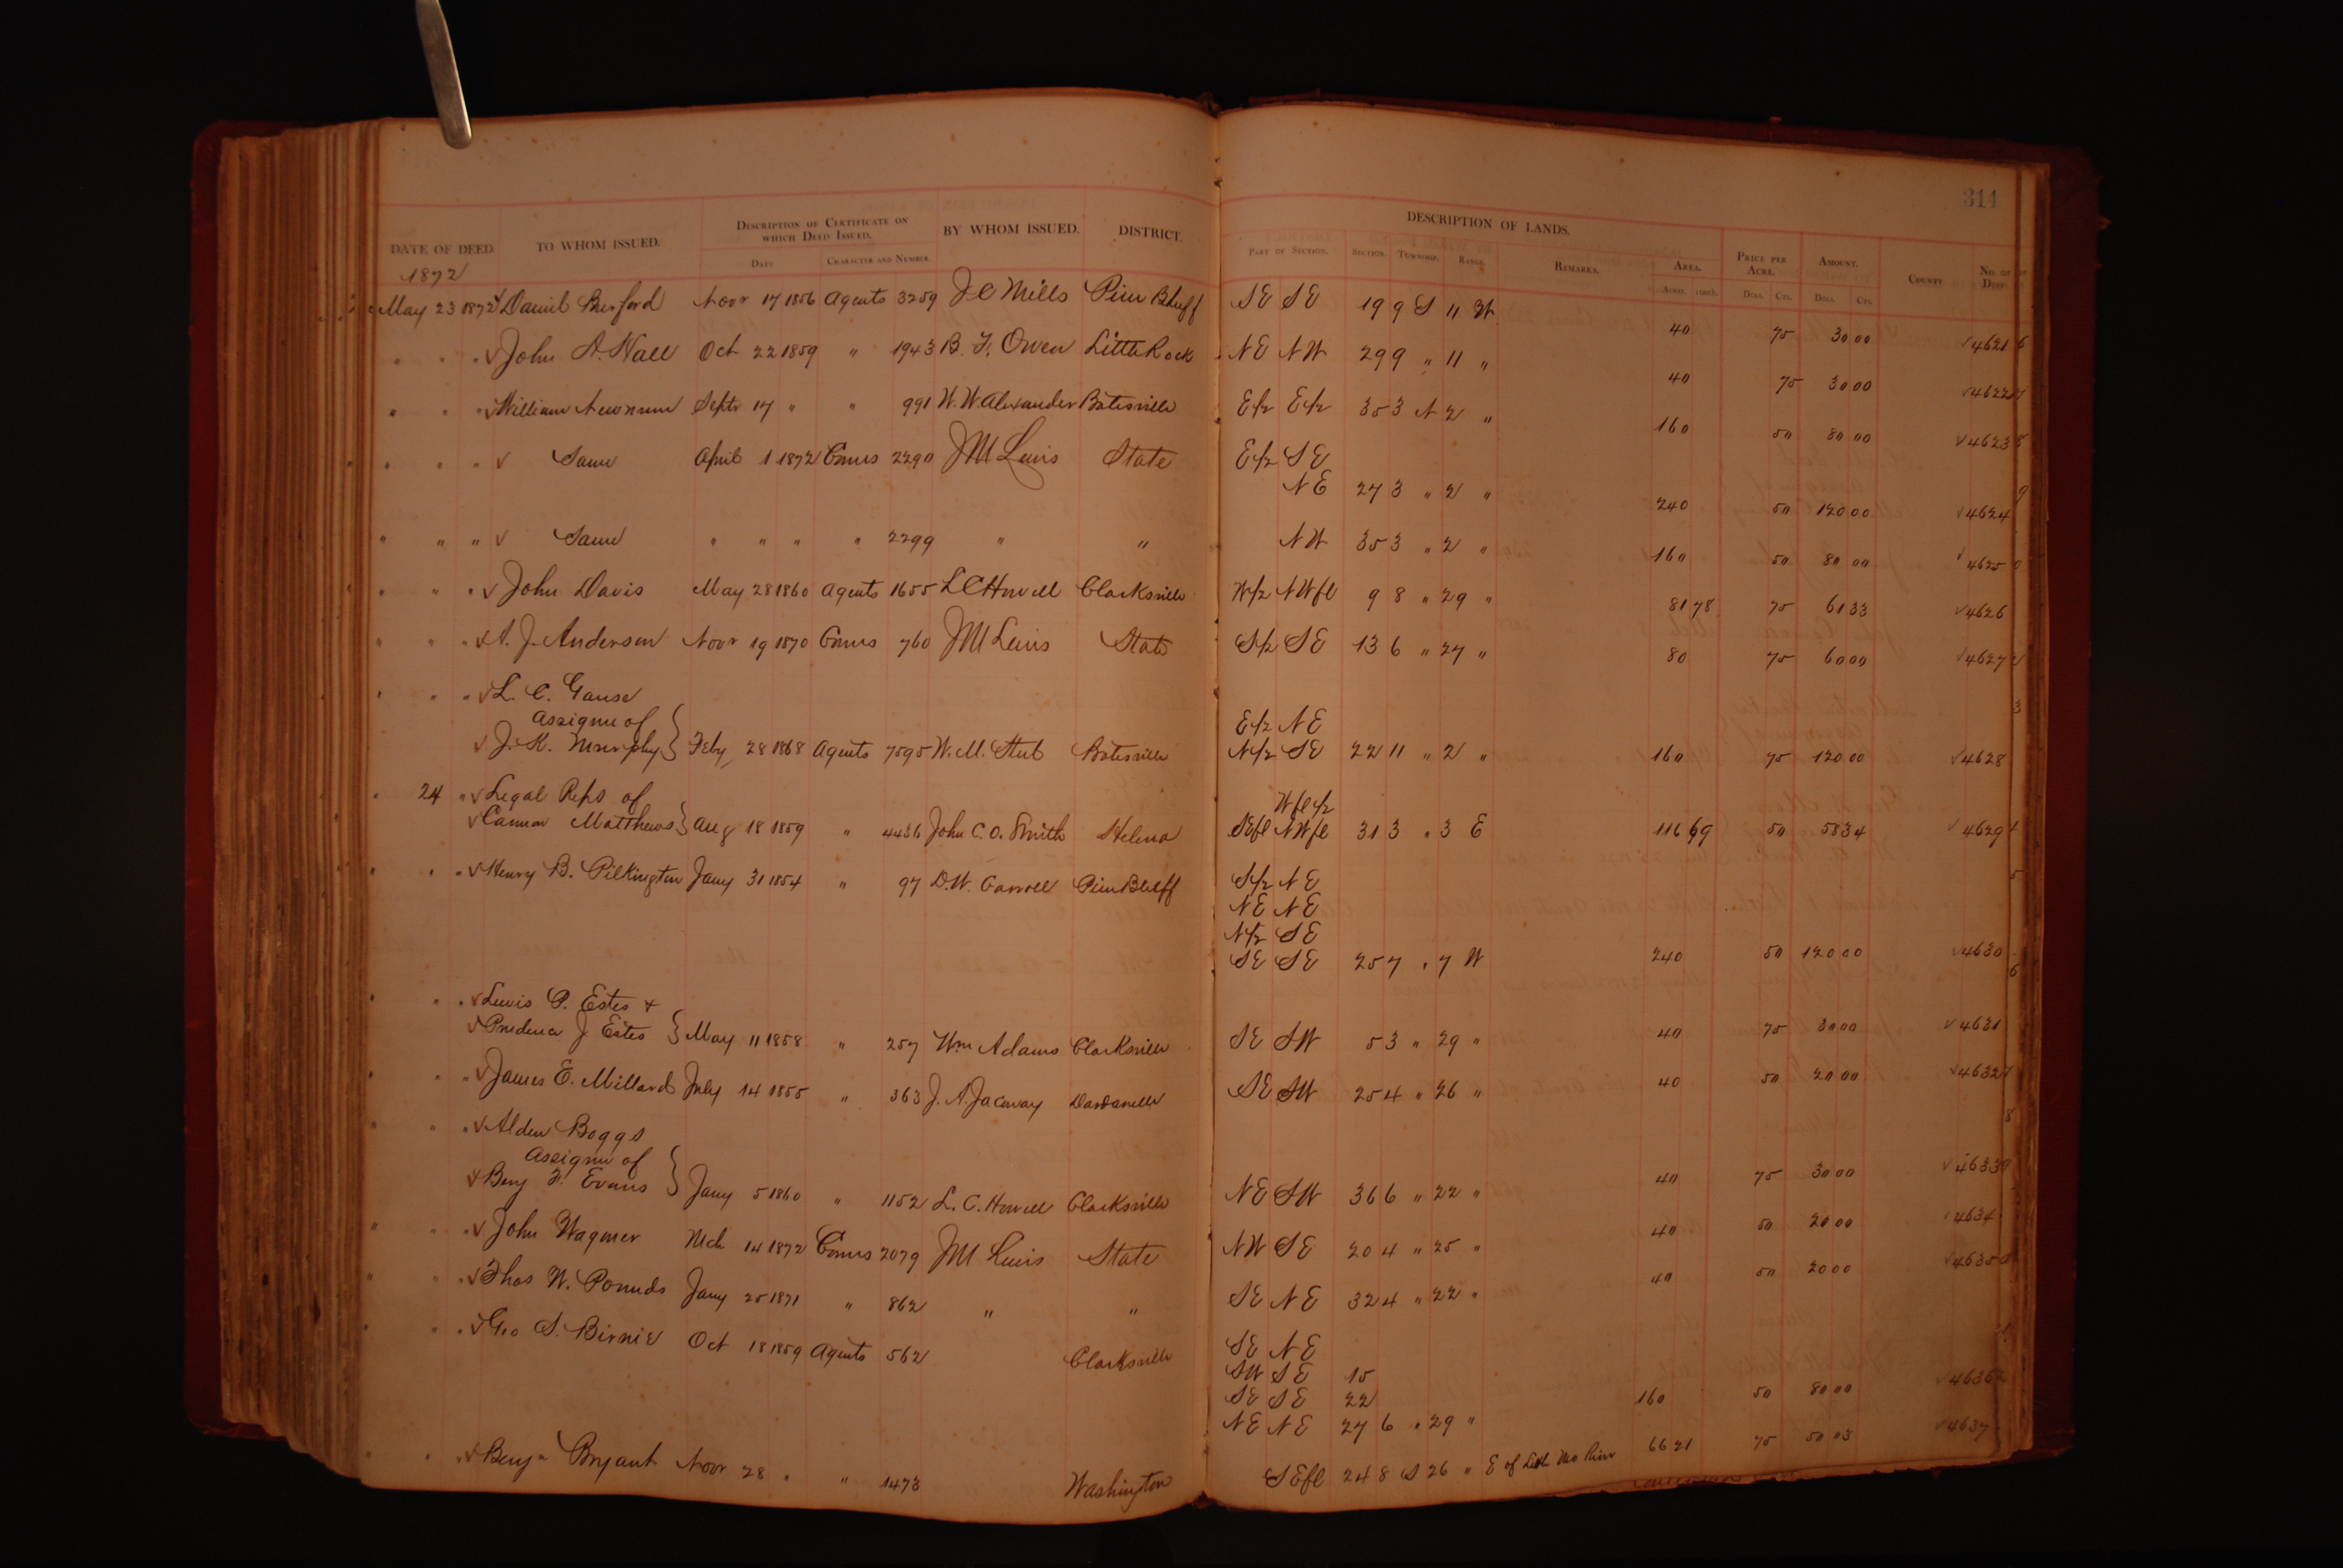 314
DESCRIPTION OF CERTIFICATE ON WHICH DEED ISSUED.
DESCRIPTION OF LANDS.
DATE OF DEED. TO WHOM ISSUED. DATE CHARACTER AND NUMBER. BY WHOM ISSUED. DISTRICT. PART OF SECTION. SECTION. TOWNSHIP. RANGE. REMARKS. AREA. ACRES. PRICE PER ACRE. DOLL. CTS. AMOUNT. DOLL. CTS. COUNTY NO. OF DEED
1872
May 23 1872 Daniel Novr 17 1856 Agents 3259 J C Mills Pine Bluff SE SE 19 9 S 11 W 40 75 30 00 4621
" " " John A. Hall Oct 22 1859 " 1943 B. F. Owen Little Rock NE NW 29 9 " 11 " 40 75 30 00 4622
" " " William Newnum Septr 17 " " 991 W. W. Alexander Batesville E/2 E/2 35 3 N 2 " 160 50 80 00 4623
" " " Same April 1 1872 Comrs 2290 J M Lewis State E/2 SE
NE 27 3 " 2 " 240 50 120 00 4624
" " " Same " " " " 2299 " " NW 35 3 " 2 " 160 50 80 00 4625
" " " John Davis May 28 1860 Agents 1655 L C Howell Clarksville W/2 NWfl 9 8 " 29 " 81 78 75 61 33 4626
" " " A. J. Anderson Novr 19 1870 Comrs 760 J M Lewis State S/2 SE 13 6 " 27 " 80 75 60 00 4627
" " " L. C. Gause
Assignee of E/2 NE
J. K. Murphy Feby 28 1868 Agents 7595 W. M. Batesville N/2 SE 22 11 " 2 " 160 75 120 00 4628
" 24 " Legal Reps of Wfl/2
Cannon Matthews Aug 18 1859 " 4436 John C. O. Smith Helena SEfl NWfl 31 3 " 3 E 116 69 50 58 34 4629
" " " Henry B. Pilkington Jany 31 1854 " 97 D. W. Carroll Pine Bluff S/2 NE
NE NE
N/2 SE
SE SE 25 7 " 7 W 240 50 120 00 4630
" " " Lewis P. Estes &
Prudence J Estes May 11 1858 " 257 Wm Adams Clarksville SE SW 5 3 " 29 " 40 75 30 00 4631
" " " James E. Millard July 14 1855 " 363 J. A. Jacoway Dardanelle SE SW 25 4 " 26 " 40 50 20 00 4632
" " " Alden Boggs
Assignee of
Benj F. Evans Jany 5 1860 " 1152 L. C. Howell Clarksville NE SW 36 6 " 22 " 40 75 30 00 4633
" " " John Wagner Mch 14 1872 Comrs 2079 J M Lewis State NW SE 20 4 " 25 " 40 50 20 00 4634
" " " Thos W. Pounds Jany 25 1871 " 862 " " SE NE 32 4 " 22 " 40 50 20 00 4635
" " " Geo S. Birnie Oct 18 1859 Agents 562 Clarksville SE NE
SW SE 15
SE SE 22
NE NE 27 6 " 29 " 160 50 80 00 4636
" " " Benjn Bryant Novr 28 " " 1473 Washington SEfl 24 8 S 26 " E of Little Mo River 66 21 75 50 03 4637